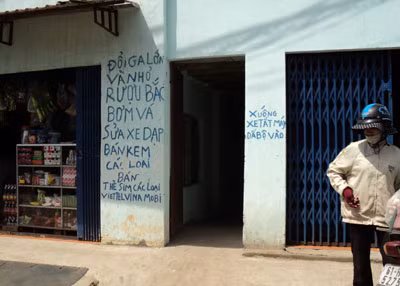 ĐỔI GA LỚN
VÀ NHỎ
RƯỢU BẮC
BƠM VÁ
SỬA XE ĐẠP
BÁN KEM
CÁC LOẠI
BÁN
THẺ SIM CÁC LOẠI
VIETTEL VINA MOBI
XUỐNG
XE TẮT MÁY
DẮT BỘ VÀO